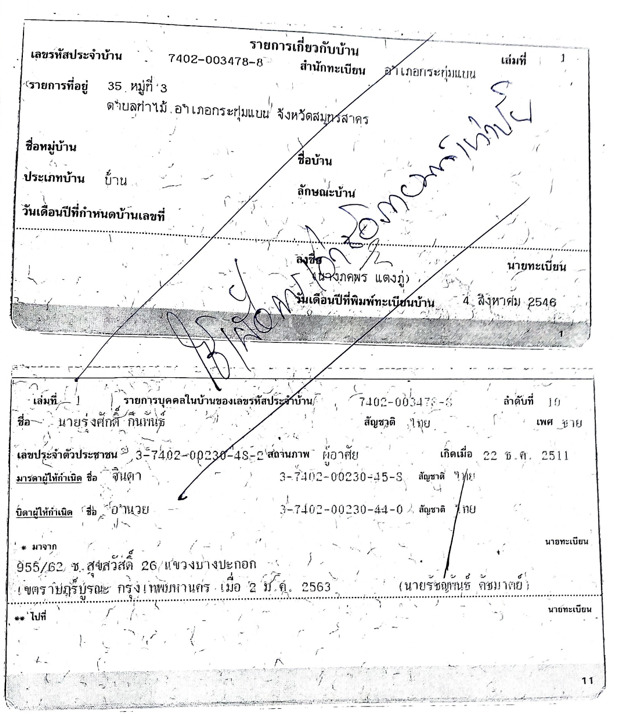 รายการเกี่ยวกับบ้าน เล่มที่ 1
เลขรหัสประจำบ้าน 7402-003478-8 สำนักทะเบียน อำเภอกระทุ่มแบน
รายการที่อยู่ 35 หมู่ที่ 3
ตำบลท่าไม้ อำเภอกระทุ่มแบน จังหวัดสมุทรสาคร
ชื่อหมู่บ้าน ชื่อบ้าน
ประเภทบ้าน บ้าน ลักษณะบ้าน
วันเดือนปีที่กำหนดบ้านเลขที่
ลงชื่อ นายทะเบียน
(นางภคพร แดงภู่)
วันเดือนปีที่พิมพ์ทะเบียนบ้าน 4 สิงหาคม 2546
1
เล่มที่ 1 รายการบุคคลในบ้านของเลขรหัสประจำบ้าน 7402-003478-8 ลำดับที่ 10
ชื่อ นายรุ่งศักดิ์ กึนพันธ์ สัญชาติ ไทย เพศ ชาย
เลขประจำตัวประชาชน 3-7402-00230-48-2 สถานภาพ ผู้อาศัย เกิดเมื่อ 22 ธ.ค. 2511
มารดาผู้ให้กำเนิด ชื่อ จินดา 3-7402-00230-45-8 สัญชาติ ไทย
บิดาผู้ให้กำเนิด ชื่อ อำนวย 3-7402-00230-44-0 สัญชาติ ไทย
* มาจาก นายทะเบียน
955/62 ซ.สุขสวัสดิ์ 26 แขวงบางปะกอก
เขตราษฎร์บูรณะ กรุงเทพมหานคร เมื่อ 2 มี.ค. 2563 (นายรัชญพันธ์ คัชมาตย์)
** ไปที่ นายทะเบียน
11